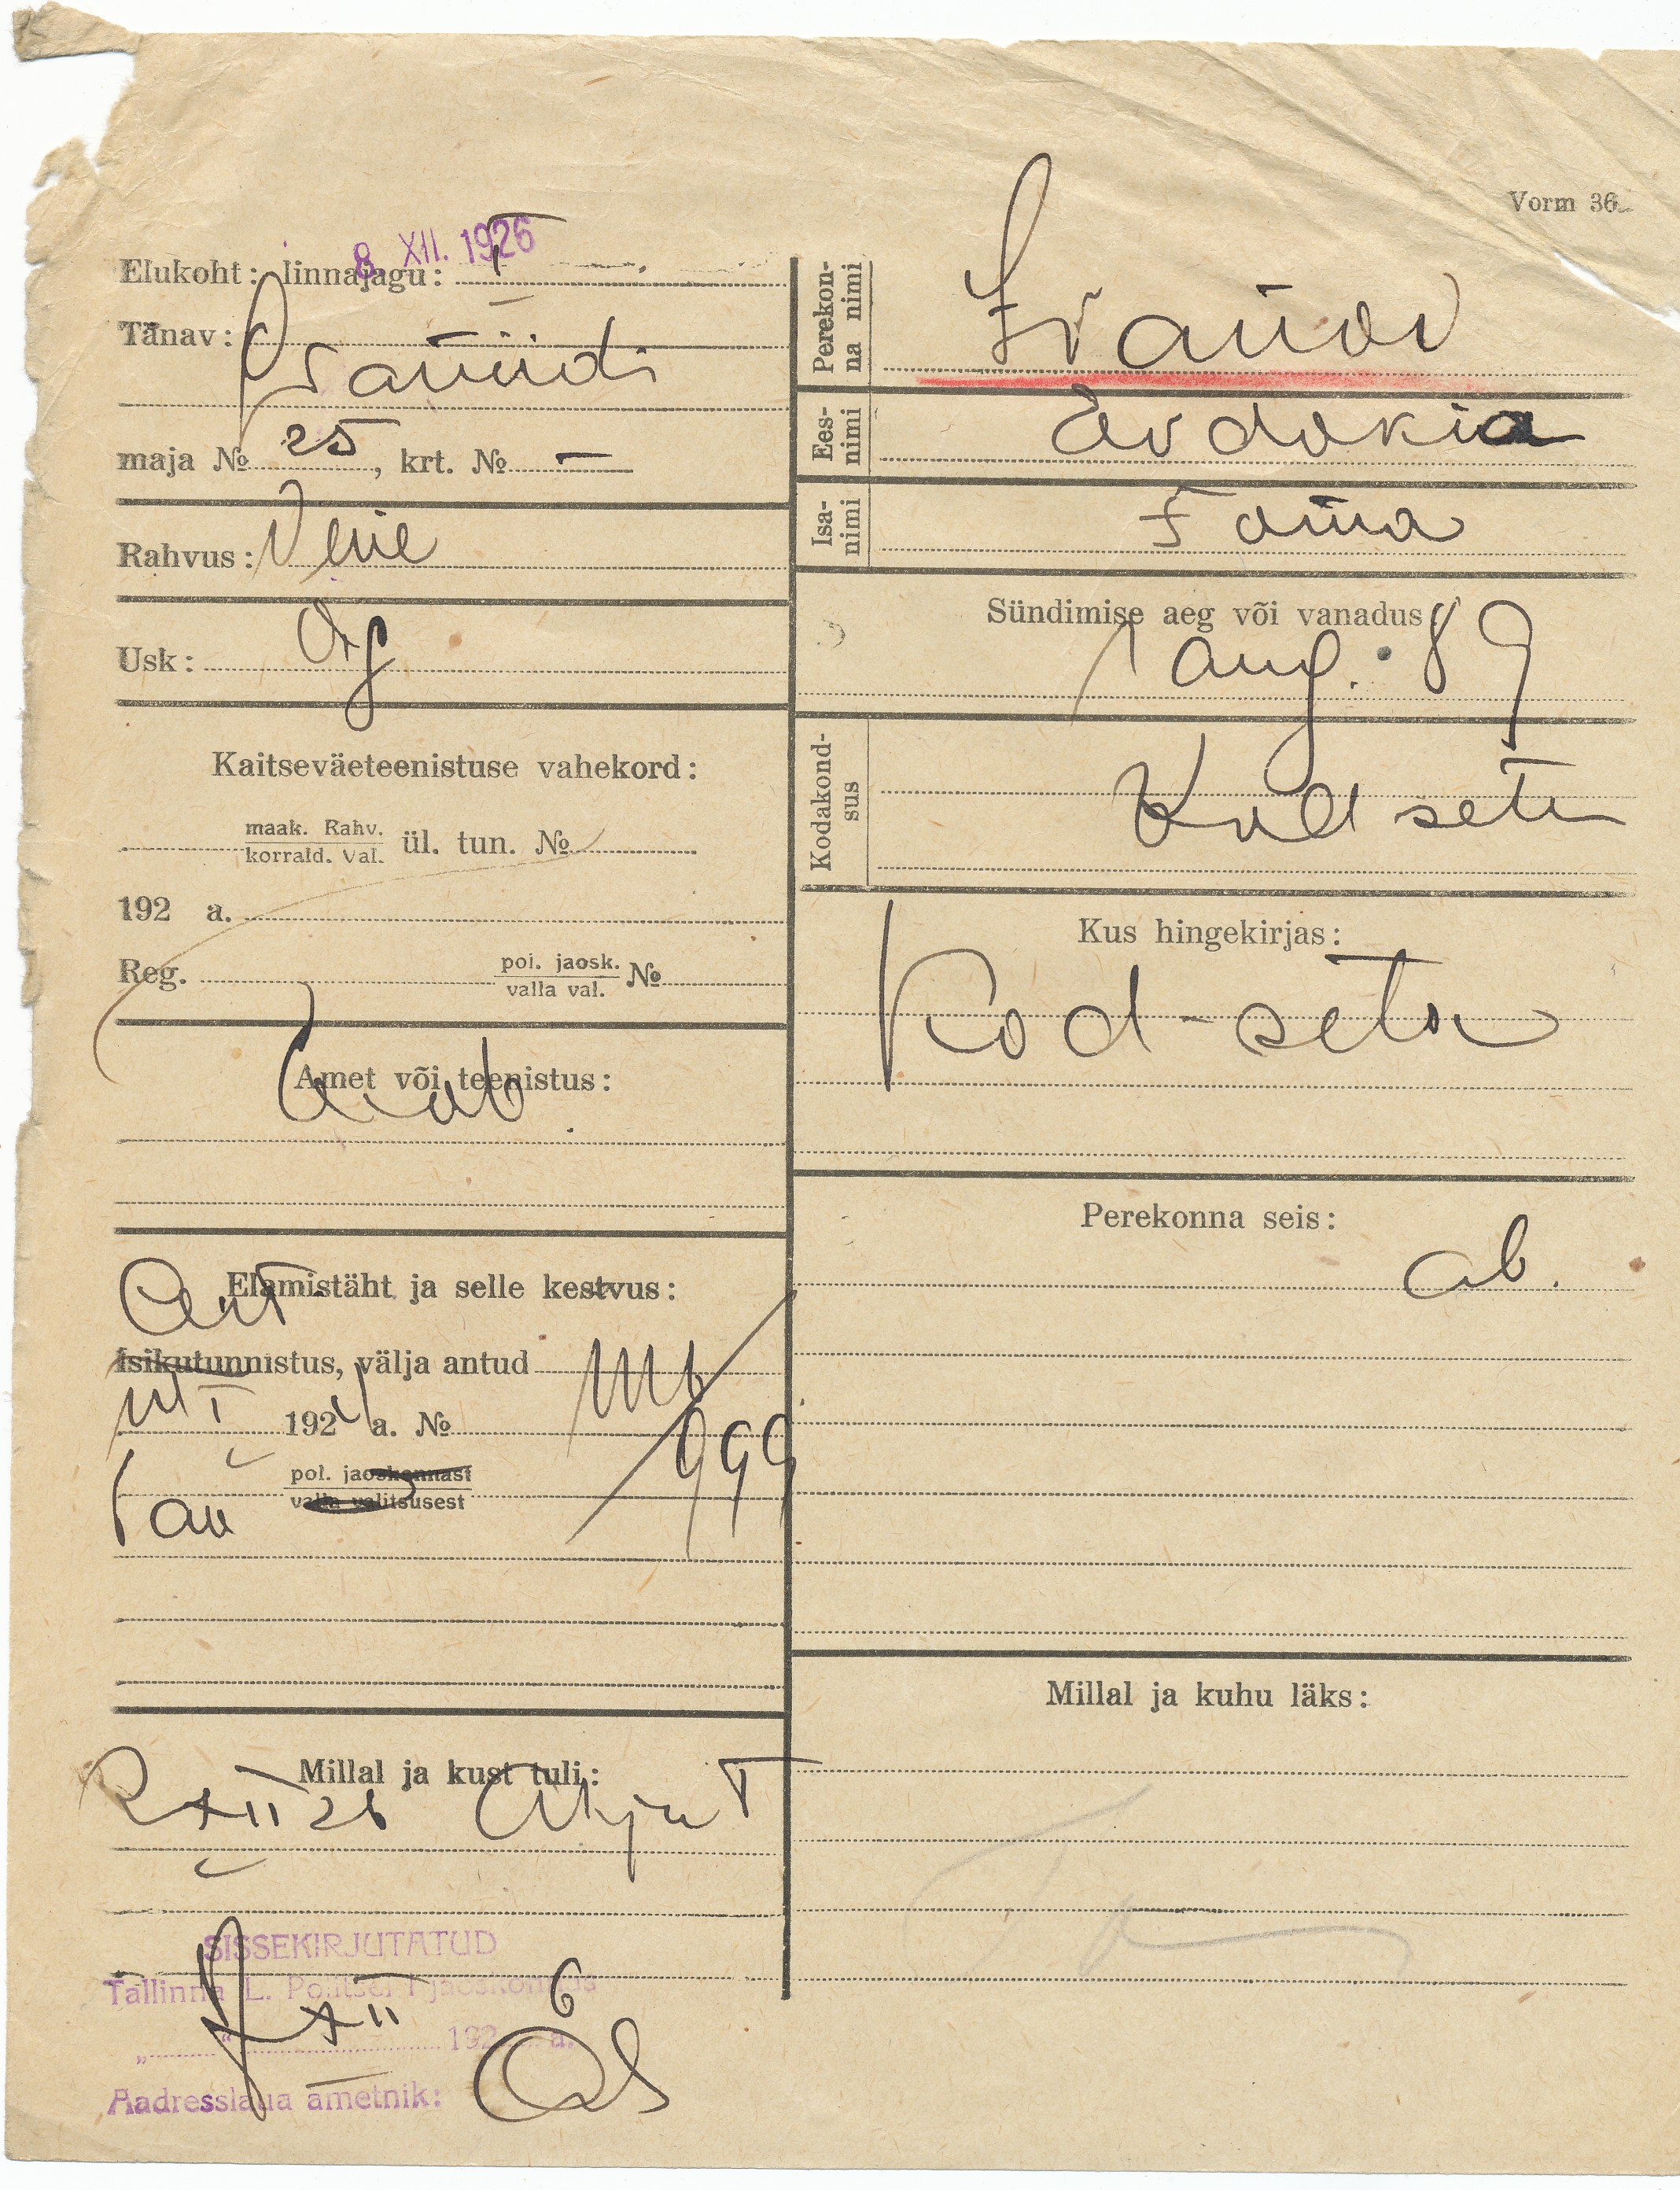 Vorm 36
8. XII. 1926
Elukoht: linnajagu: I
Tänav:
maja № 25, krt. № —
Rahvus: Vene
Usk:
Kaitseväeteenistuse vahekord:
maak. Rahv.
korrald. Val. ül. tun. №
192 a.
Reg. pol. jaosk.
valla val. №
Amet või teenistus:
Elamistäht ja selle kestvus:
Isikutunnistus, välja antud
192 a. №
999
pol. jaoskonnast
valla valitsusest
Millal ja kust tuli:
XII 26
SISSEKIRJUTATUD
Tallinna L. Politsei I jaoskonnas
„ “ XII 1926 a.
Aadresslaua ametnik:
Perekonna nimi
Ivanov
Eesnimi
Evdokia
Isanimi
Foma
Sündimise aeg või vanadus
1 aug. 89
Kodakondsus
Kod setu
Kus hingekirjas:
Kod-setu
Perekonna seis:
ab.
Millal ja kuhu läks: